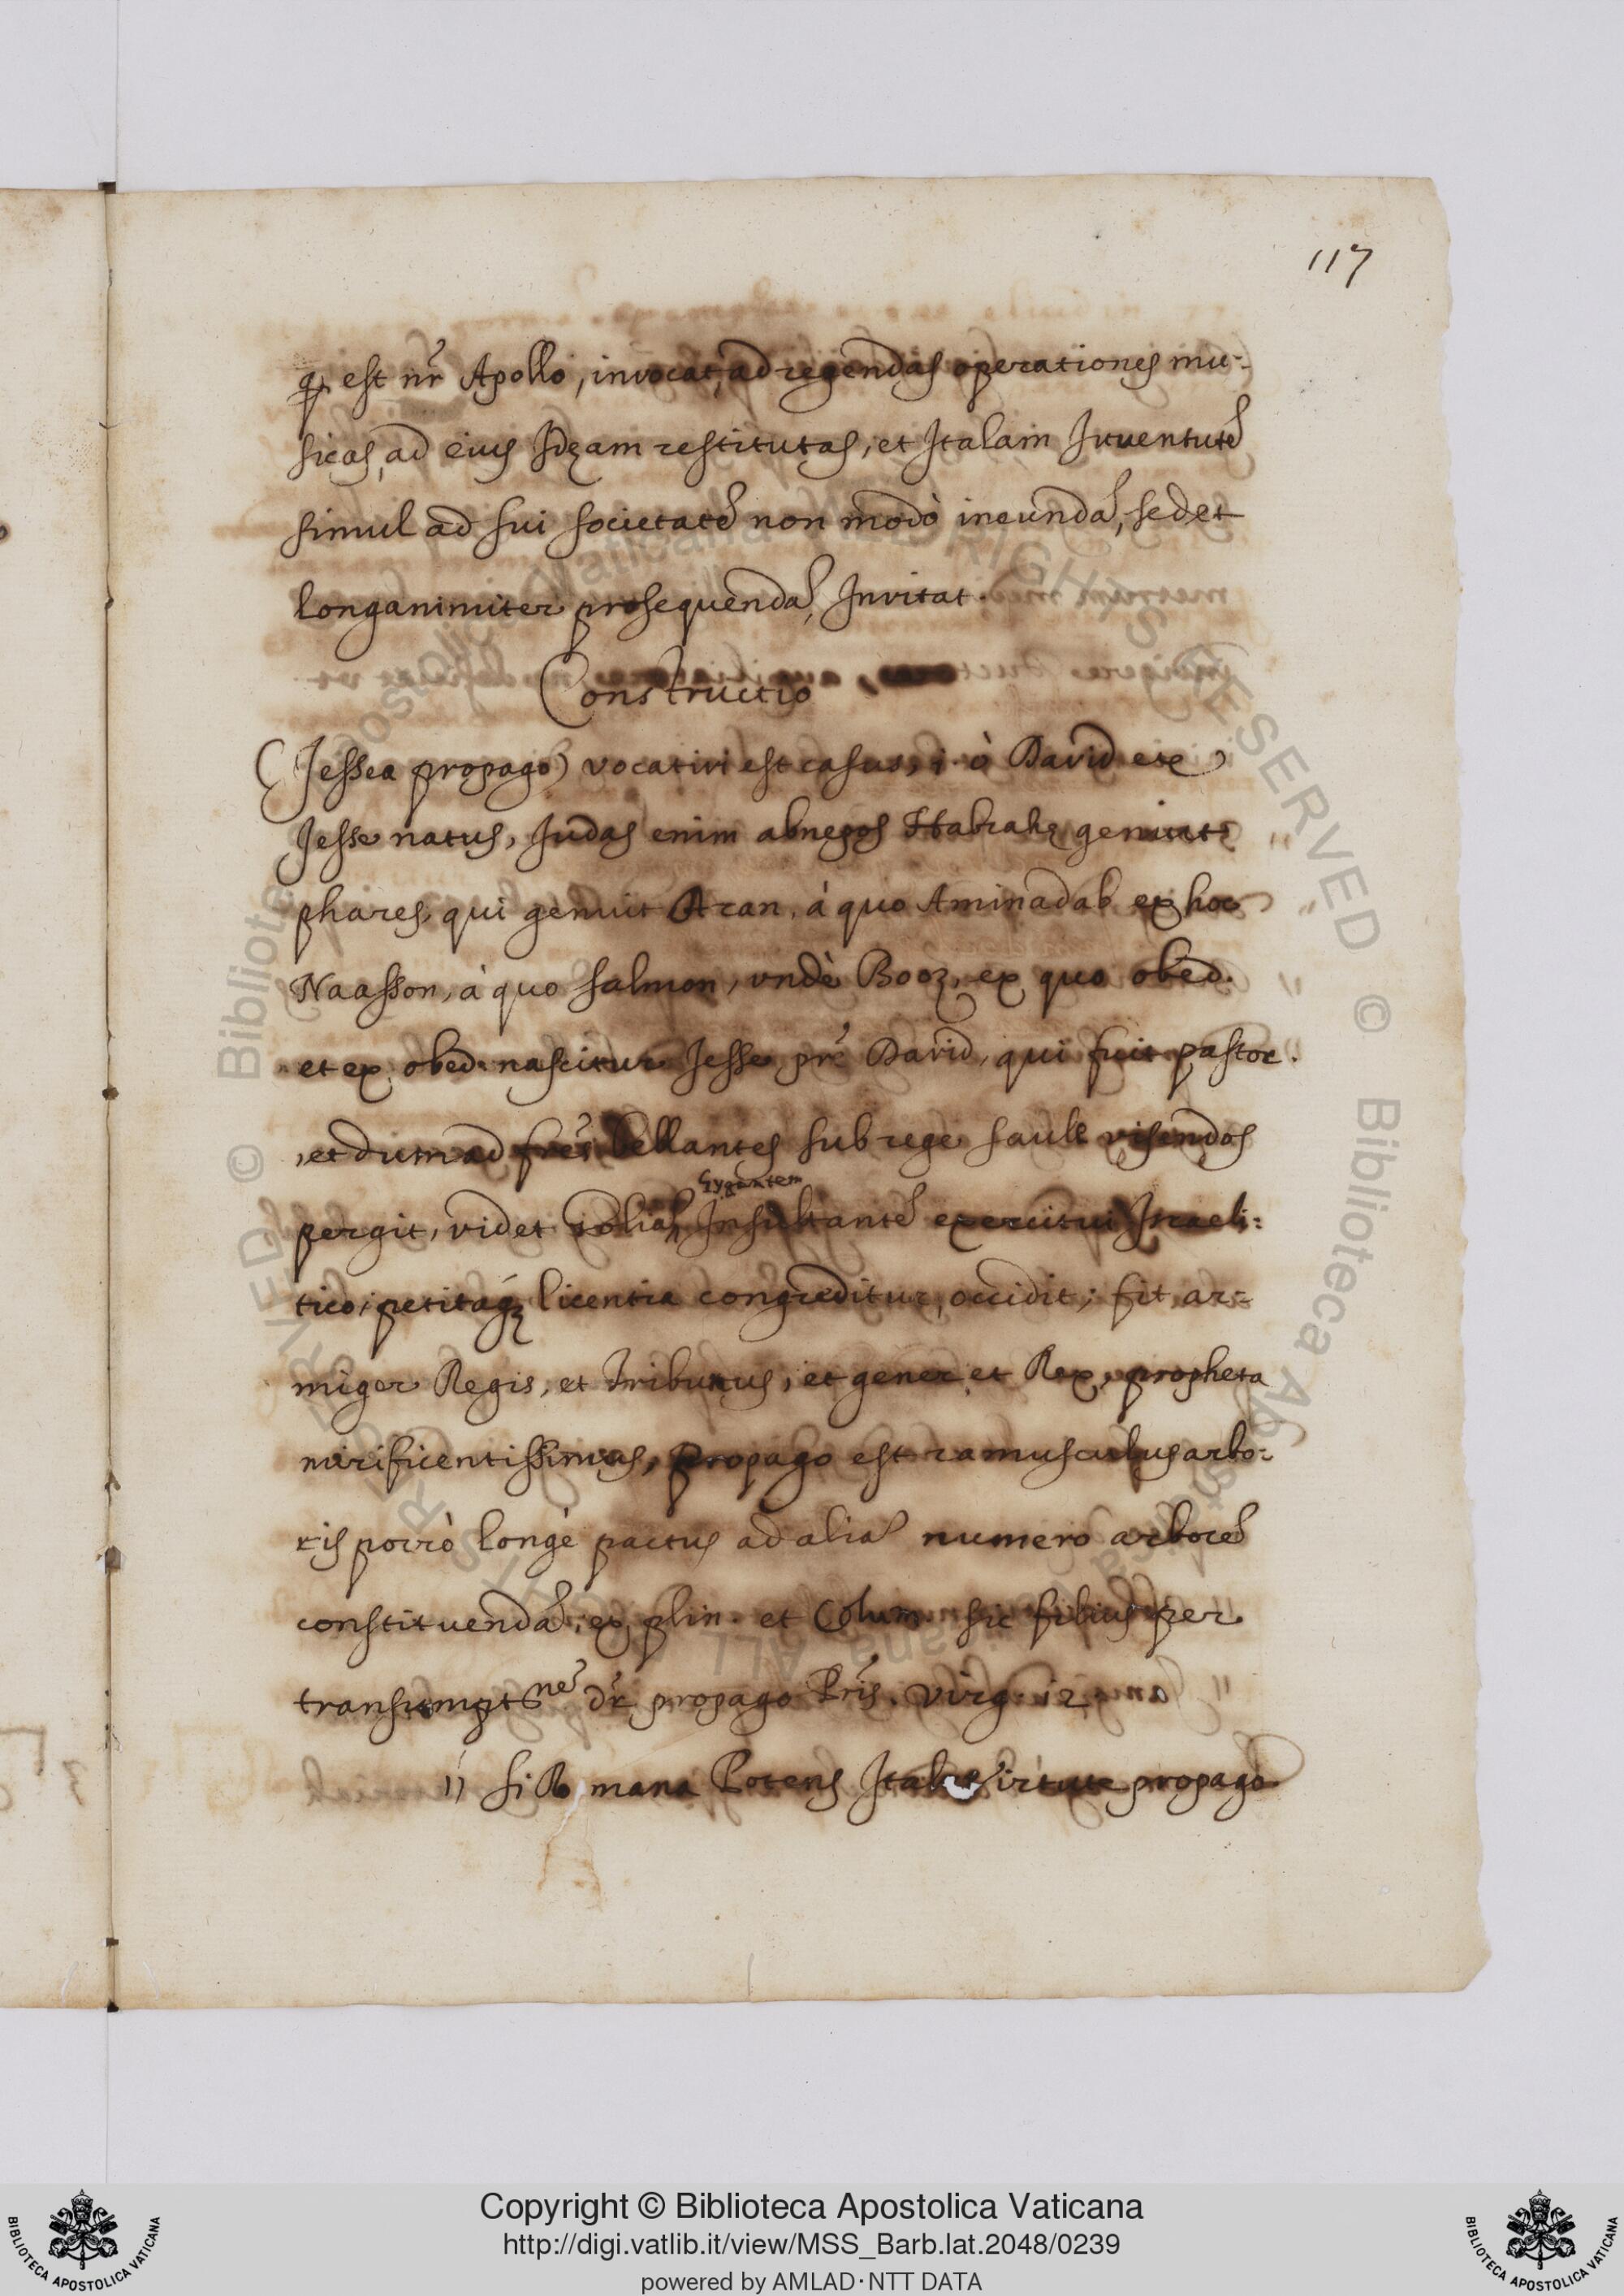 117
q̃ est nr̃ Apollo, invocat, ad regendas operationes mu-
sicas, ad eius Idęam restitutas, et Italam Iuventutẽ
simul ad sui societatẽ non modò ineundã, sed et
longanimiter prosequendã, Invitat.
Constructio
(Jessea propago) vocativi est casus, i. ò David ex
Jesse natus, Judas enim abnepos Habrahę genuit
phares, qui genuit Aran, à quo Aminadab ex hoc
Naasson, à quo salmon, undè Booz, ex quo obed.
et ex obed nascitur Jesse pr̃ David, qui fuit pastor.
, et dum ad frẽs bellantes sub rege saule visendos
Gygantem
pergit, videt Insultantẽ exercitui Israeli:
tico, petitaq́ licentia congreditur, occidit; fit ar-
miger Regis, et Tribunus, et gener, et Rex, propheta
mirificentissimus, propago est ramusculus arbo-
ris porrò longè pactus ad aliã numero arborẽ
constituendã, ex plin. et Colum. sic filius per
transumptnẽ dr̃ propago Pris. Virg. 12
" si Romana Potens Itala virtute propago
Copyright © Biblioteca Apostolica Vaticana
http://digi.vatlib.it/view/MSS_Barb.lat.2048/0239
powered by AMLAD·NTT DATA
BIBLIOTECA APOSTOLICA VATICANA
BIBLIOTECA APOSTOLICA VATICANA